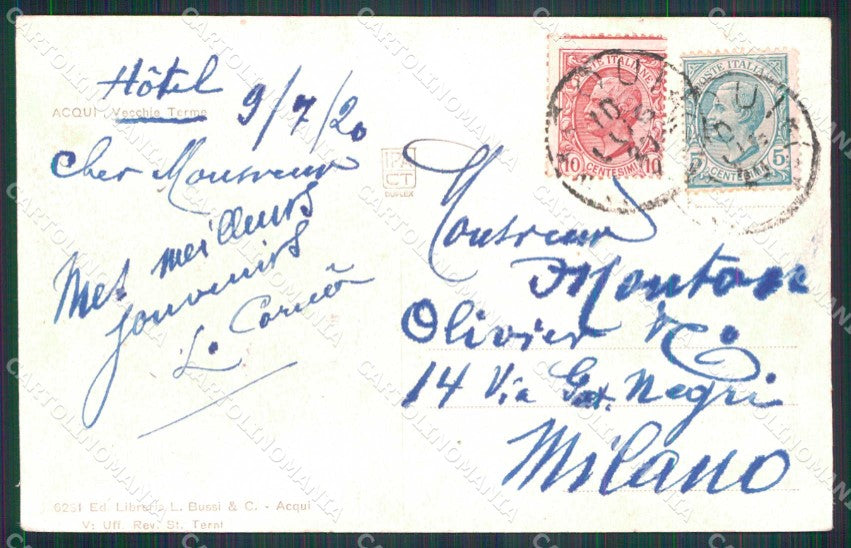 Hôtel
ACQUI - Vecchie Terme
9/7/20
Cher Monsieur
Mes meilleurs
souvenirs
L.
6261 Ed. Libreria L. Bussi & C. - Acqui
V: Uff. Rev. St. Terni
DUPLEX
POSTE ITALIANE
10 CENTESIMI 10
POSTE ITALIANE
5 CENTESIMI 5
ACQUI
Monsieur
Olivier & Co
14 Via Gaet. Negri
Milano
CARTOLINOMANIA